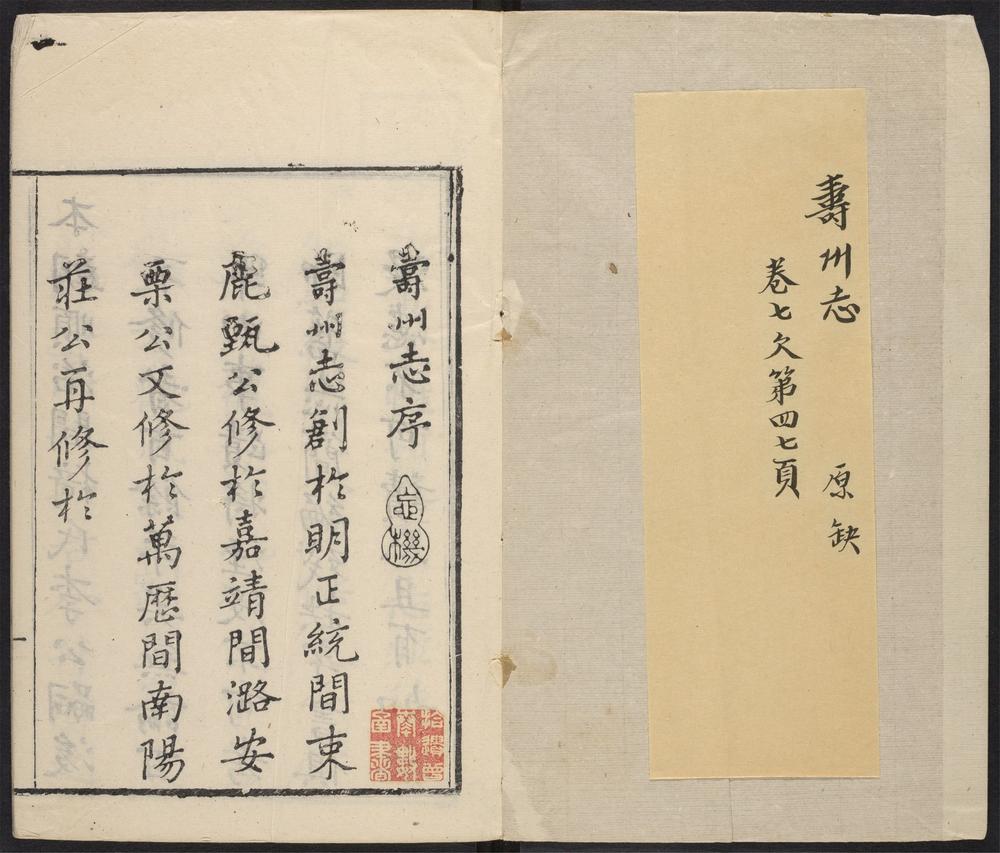 壽州志 原缺
卷七欠第四七頁
壽州志序
壽州志創於明正統間束
鹿甄公修於嘉靖間潞安
栗公又修於萬歷間南陽
莊公再修於